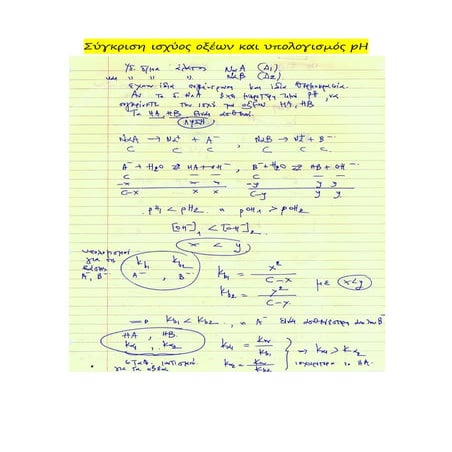 Σύγκριση ισχύος οξέων και υπολογισμός pH
Υδ. δ/μα άλατος NaA (Δ1)
και " " " NaB (Δ2)
έχουν ίδια συγκέντρωση και ίδια θερμοκρασία.
Αν το δ. NaA έχει μικρότερη τιμή pH, να
συγκρίνετε την ισχύ των οξέων HA, HB
Τα HA, HB είναι ασθενή.
ΛΥΣΗ
NaA → Na⁺ + A⁻ , NaB → Na⁺ + B⁻
C C C C C C
A⁻ + H₂O ⇌ HA + OH⁻ , B⁻ + H₂O ⇌ HB + OH⁻
C — — C — —
-x x x -y y y
C-x x x C-y y y
pH₁ < pH₂ ή pOH₁ > pOH₂
[OH⁻]₁ < [OH⁻]₂
x < y
υπολογισμοί
για τις
βάσεις
A⁻, B⁻
Kb₁ Kb₂
A⁻ , B⁻
Kb₁ = x²/C-x
Kb₂ = y²/C-y
με x<y
→ Kb₁ < Kb₂ , η A⁻ είναι ασθενέστερη από την B⁻
HA , HB
Ka₁ , Ka₂
για τα οξέα
Ka₁ = Kw/Kb₁
Ka₂ = Kw/Kb₂
⇒ Ka₁ > Ka₂
ισχυρότερο το HA.